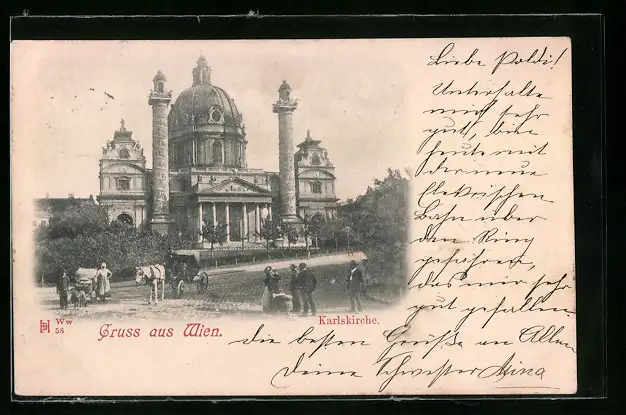 Liebe Poldi!
Unterhalte
mich sehr
gut, bin
heute mit
der neuen
elektrischen
Bahn über
den Ring
gefahren,
das mir sehr
gut gefallen
Karlskirche.
HD Ww
58
Gruss aus Wien.
die besten Grüße an Allen
Deine Schwester Mina